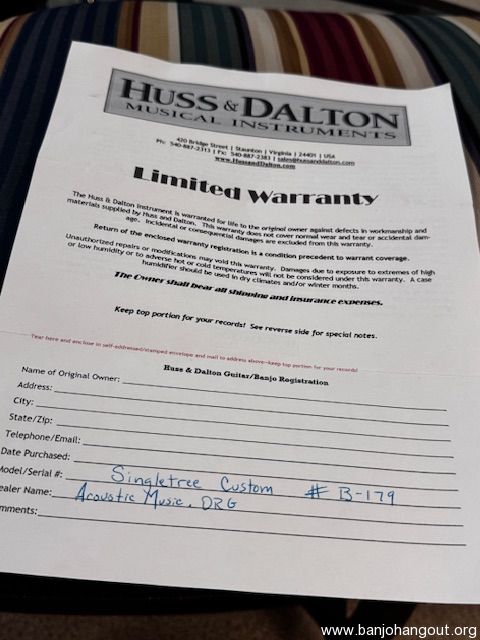 HUSS & DALTON
MUSICAL INSTRUMENTS
420 Bridge Street | Staunton | Virginia | 24401 | USA
Ph: 540-887-2313 | Fx: 540-887-2383 | sales@hussanddalton.com
www.HussandDalton.com
Limited Warranty
The Huss & Dalton Instrument is warranted for life to the original owner against defects in workmanship and
materials supplied by Huss and Dalton. This warranty does not cover normal wear and tear or accidental dam-
age. Incidental or consequential damages are excluded from this warranty.
Return of the enclosed warranty registration is a condition precedent to warrant coverage.
Unauthorized repairs or modifications may void this warranty. Damages due to exposure to extremes of high
or low humidity or to adverse hot or cold temperatures will not be considered under this warranty. A case
humidifier should be used in dry climates and/or winter months.
The Owner shall bear all shipping and insurance expenses.
Keep top portion for your records! See reverse side for special notes.
Tear here and enclose in self-addressed/stamped envelope and mail to address above-keep top portion for your records!
Huss & Dalton Guitar/Banjo Registration
Name of Original Owner:
Address:
City:
State/Zip:
Telephone/Email:
Date Purchased:
Model/Serial #: Singletree Custom # B-179
ealer Name: Acoustic Music. ORG
mments:
www.banjohangout.org